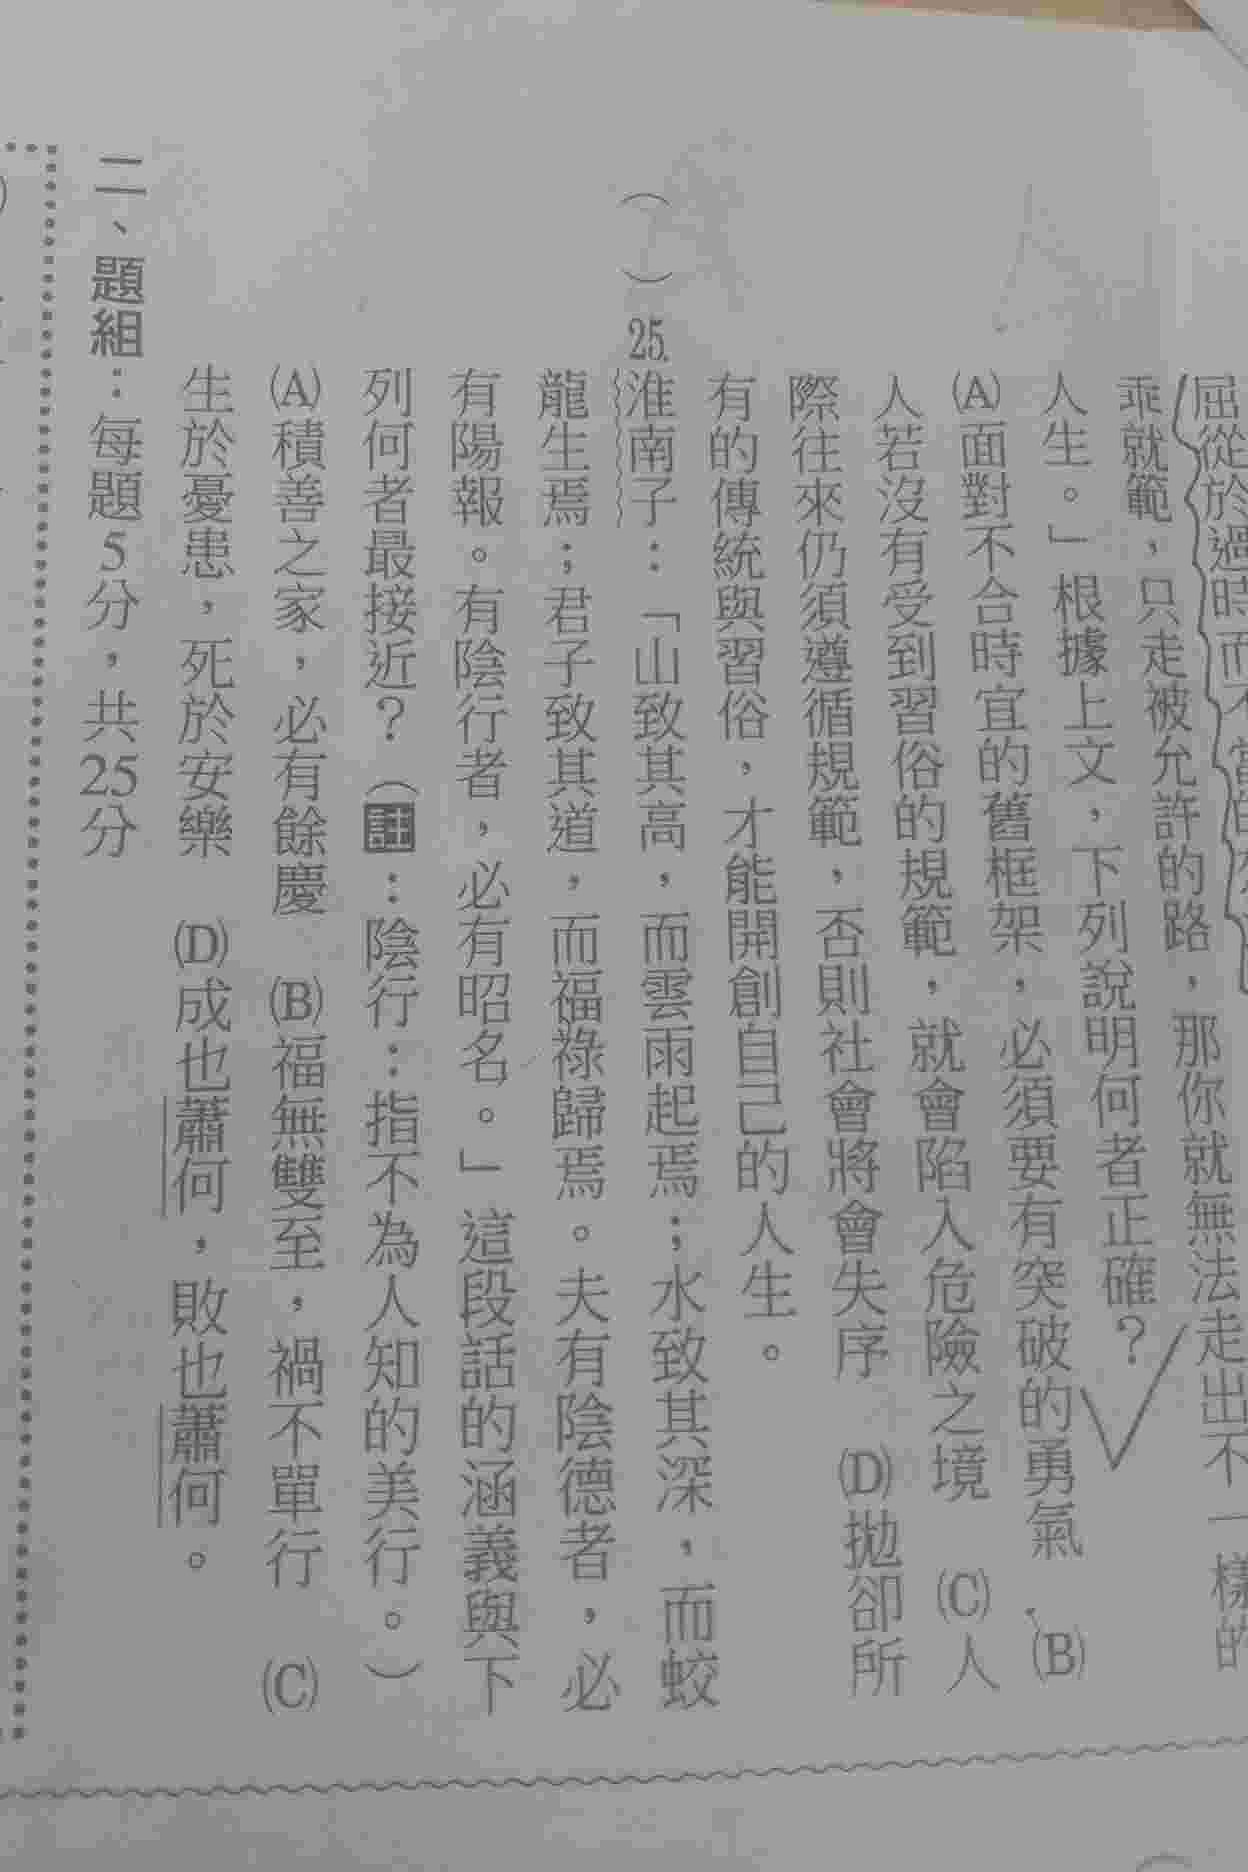 屈從於過時而不
乖就範，只走被允許的路，那你就無法走出不一樣的
人生。」根據上文，下列說明何者正確？
(A)面對不合時宜的舊框架，必須要有突破的勇氣　(B)
人若沒有受到習俗的規範，就會陷入危險之境　(C)人
際往來仍須遵循規範，否則社會將會失序　(D)拋卻所
有的傳統與習俗，才能開創自己的人生。
（　）25.淮南子：「山致其高，而雲雨起焉；水致其深，而蛟
龍生焉；君子致其道，而福祿歸焉。夫有陰德者，必
有陽報。有陰行者，必有昭名。」這段話的涵義與下
列何者最接近？（註：陰行：指不為人知的美行。）
(A)積善之家，必有餘慶　(B)福無雙至，禍不單行　(C)
生於憂患，死於安樂　(D)成也蕭何，敗也蕭何。
二、題組：每題5分，共25分